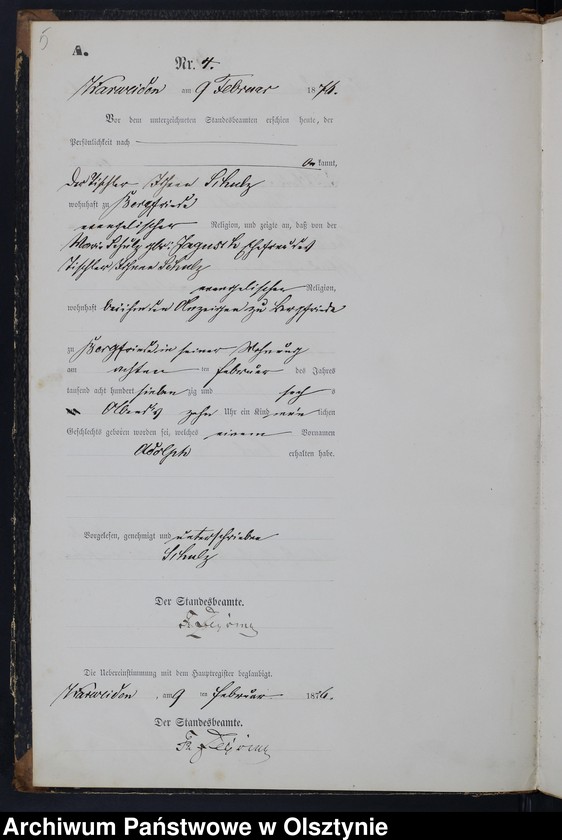 5
A.
Nr. 4.
Karweiden am 9 Februar 1876.
Vor dem unterzeichneten Standesbeamten erschien heute, der
Persönlichkeit nach
kannt,
der Tischler Schulz
wohnhaft zu Bergfriede
evangelischer Religion, und zeigte an, daß von der
Marie Schulz geb. Ehefrau des
Tischler Schulz
evangelischer Religion,
wohnhaft bei ihm dem Anzeigen zu Bergfriede
zu Bergfriede in seiner Wohnung
am achten im Februar des Jahres
tausend acht hundert sieben zig und sech s
Abends zehn Uhr ein Kind männ lichen
Geschlechts geboren worden sei, welches einen Vornamen
Adolph erhalten habe.
Vorgelesen, genehmigt und unterschrieben
Schulz
Der Standesbeamte.
Die Uebereinstimmung mit dem Hauptregister beglaubigt.
Karweiden, am 9 ten Februar 1876.
Der Standesbeamte.
Archiwum Państwowe w Olsztynie